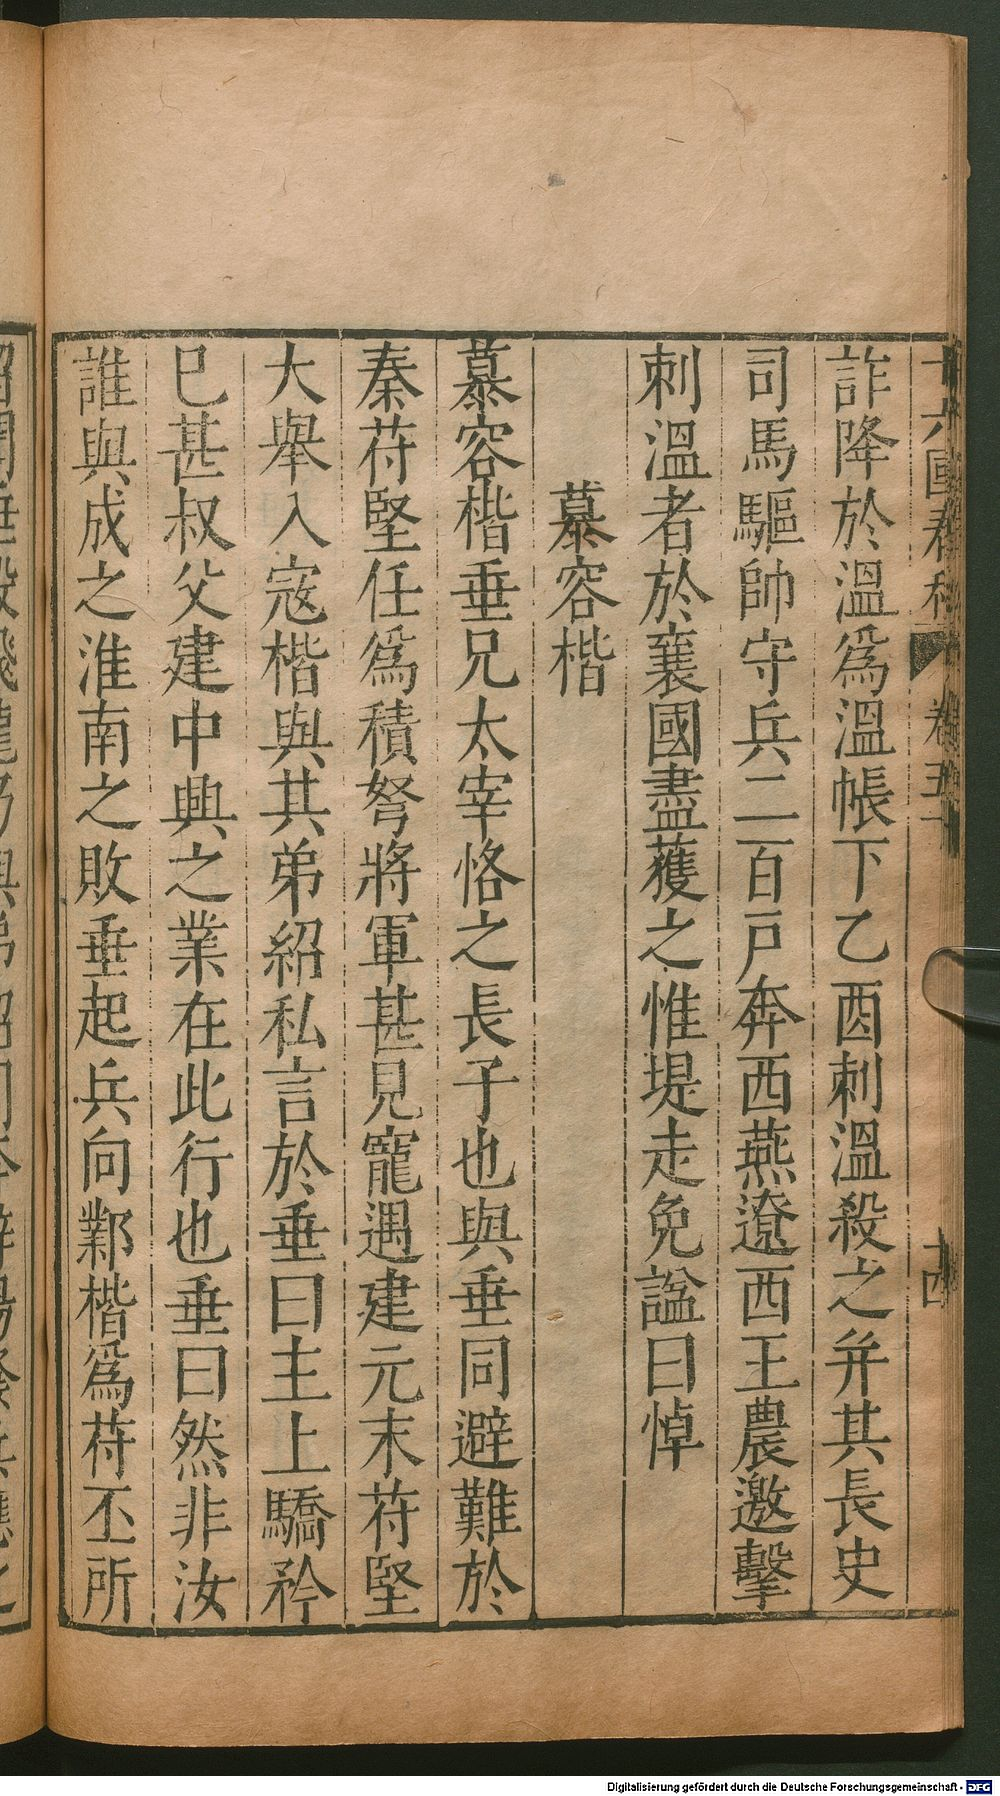 十六國春秋 卷五十 十四
詐降於溫爲溫帳下乙酉刺溫殺之并其長史
司馬驅帥守兵二百戸奔西燕遼西王農邀擊
刺溫者於襄國盡獲之惟堤走免諡曰悼
慕容楷
慕容楷垂兄太宰恪之長子也與垂同避難於
秦苻堅任爲積弩將軍甚見寵遇建元末苻堅
大舉入寇楷與其弟紹私言於垂曰主上驕矜
巳甚叔父建中興之業在此行也垂曰然非汝
誰與成之淮南之敗垂起兵向鄴楷爲苻丕所
Digitalisierung gefördert durch die Deutsche Forschungsgemeinschaft - DFG